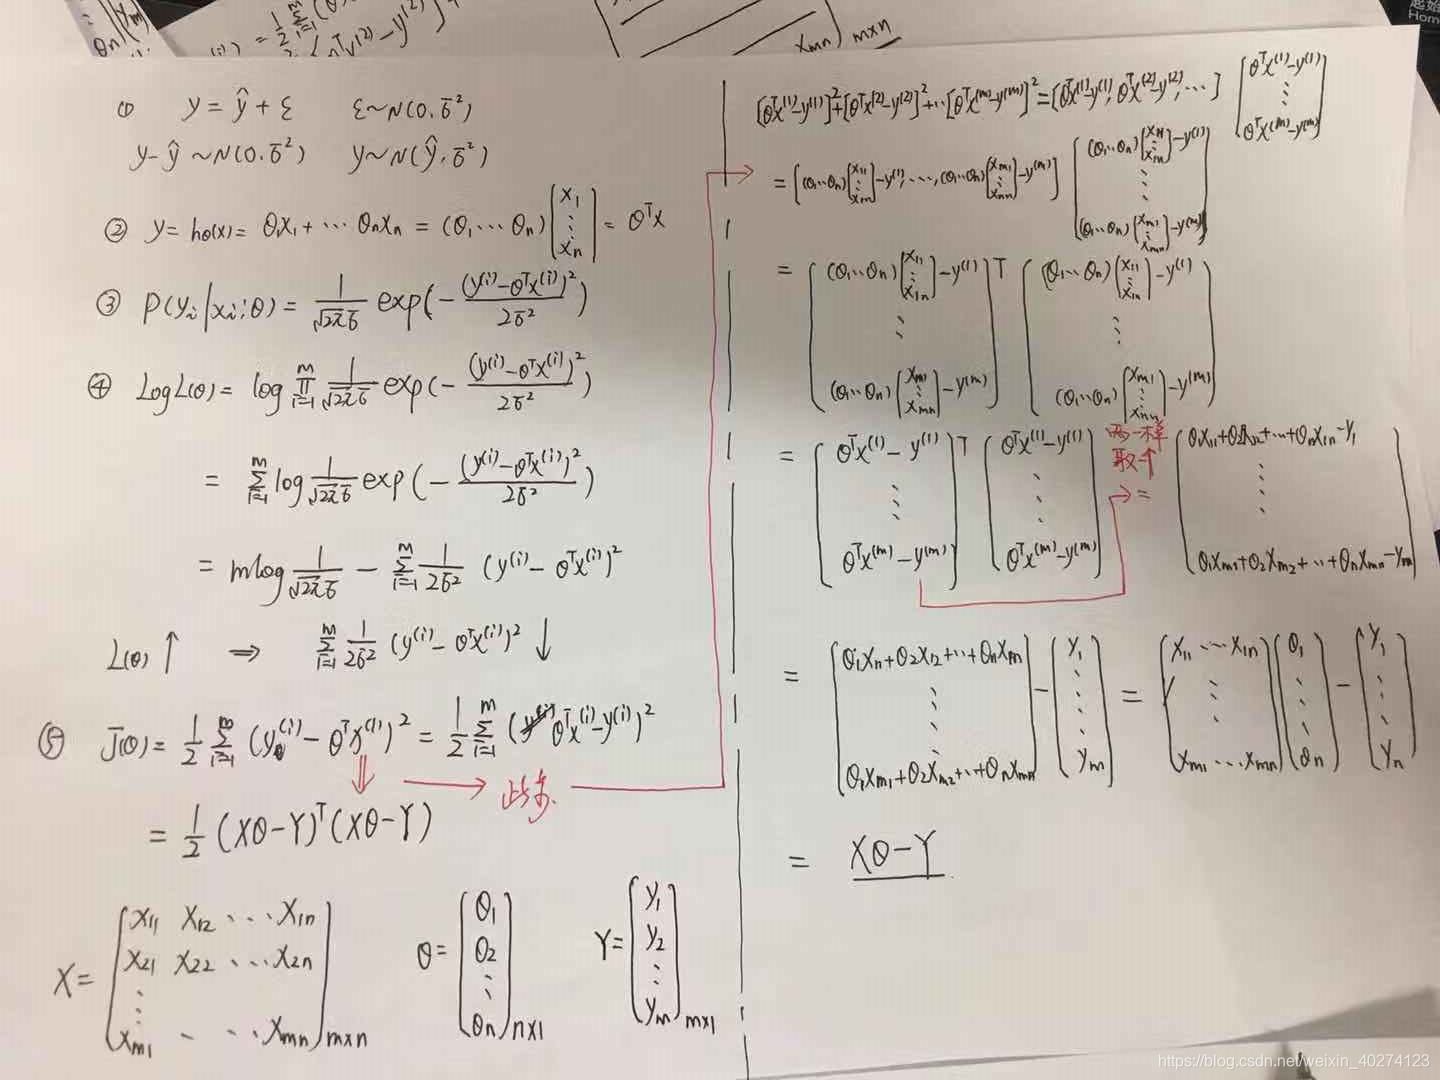 ① y = ŷ + ε  ε~N(0.σ̄²)
y-ŷ ~N(0.σ̄²)  y~N(ŷ.σ̄²)
② y = hθ(x) = θ₁x₁ + ⋯ θₙxₙ = (θ₁⋯θₙ)[x₁ ⋮ xₙ] = θᵀx
③ P(yᵢ|xᵢ;θ) = 1/(√2π σ̄) exp(-(y⁽ⁱ⁾-θᵀx⁽ⁱ⁾)²/2σ̄²)
④ LogL(θ) = log ∏ᵢ₌₁ᵐ 1/(√2π σ̄) exp(-(y⁽ⁱ⁾-θᵀx⁽ⁱ⁾)²/2σ̄²)
= Σᵢ₌₁ᵐ log 1/(√2π σ̄) exp(-(y⁽ⁱ⁾-θᵀx⁽ⁱ⁾)²/2σ̄²)
= mlog 1/(√2π σ̄) - Σᵢ₌₁ᵐ 1/2σ̄² (y⁽ⁱ⁾-θᵀx⁽ⁱ⁾)²
L(θ)↑ ⇒ Σᵢ₌₁ᵐ 1/2σ̄² (y⁽ⁱ⁾-θᵀx⁽ⁱ⁾)² ↓
⑤ J(θ) = 1/2 Σᵢ₌₁ᵐ (y⁽ⁱ⁾-θᵀx⁽ⁱ⁾)² = 1/2 Σᵢ₌₁ᵐ (θᵀx⁽ⁱ⁾-y⁽ⁱ⁾)²
⇓ → 此步.
= 1/2 (Xθ-Y)ᵀ(Xθ-Y)
X = [x₁₁ x₁₂ ⋯ x₁ₙ
x₂₁ x₂₂ ⋯ x₂ₙ
⋮
xₘ₁ ⋯ xₘₙ]m×n
θ = [θ₁ θ₂ ⋮ θₙ]n×1
Y = [y₁ y₂ ⋮ yₘ]m×1
[θᵀx⁽¹⁾-y⁽¹⁾]²+[θᵀx⁽²⁾-y⁽²⁾]²+⋯[θᵀx⁽ᵐ⁾-y⁽ᵐ⁾]² = [θᵀx⁽¹⁾-y⁽¹⁾, θᵀx⁽²⁾-y⁽²⁾, ⋯] [θᵀx⁽¹⁾-y⁽¹⁾ ⋮ θᵀx⁽ᵐ⁾-y⁽ᵐ⁾]
= [(θ₁⋯θₙ)[x₁₁ ⋮ x₁ₙ]-y⁽¹⁾, ⋯, (θ₁⋯θₙ)[xₘ₁ ⋮ xₘₙ]-y⁽ᵐ⁾] [(θ₁⋯θₙ)[x₁₁ ⋮ x₁ₙ]-y⁽¹⁾ ⋮ (θ₁⋯θₙ)[xₘ₁ ⋮ xₘₙ]-y⁽ᵐ⁾]
= [(θ₁⋯θₙ)[x₁₁ ⋮ x₁ₙ]-y⁽¹⁾ ⋮ (θ₁⋯θₙ)[xₘ₁ ⋮ xₘₙ]-y⁽ᵐ⁾]ᵀ [(θ₁⋯θₙ)[x₁₁ ⋮ x₁ₙ]-y⁽¹⁾ ⋮ (θ₁⋯θₙ)[xₘ₁ ⋮ xₘₙ]-y⁽ᵐ⁾]
= [θᵀx⁽¹⁾-y⁽¹⁾ ⋮ θᵀx⁽ᵐ⁾-y⁽ᵐ⁾]ᵀ [θᵀx⁽¹⁾-y⁽¹⁾ ⋮ θᵀx⁽ᵐ⁾-y⁽ᵐ⁾]
两一样
取一个
= [θ₁x₁₁+θ₂x₁₂+⋯+θₙx₁ₙ-y₁ ⋮ θ₁xₘ₁+θ₂xₘ₂+⋯+θₙxₘₙ-yₘ]
= [θ₁x₁₁+θ₂x₁₂+⋯+θₙx₁ₙ ⋮ θ₁xₘ₁+θ₂xₘ₂+⋯+θₙxₘₙ] - [y₁ ⋮ yₘ] = [x₁₁ ⋯ x₁ₙ ⋮ xₘ₁ ⋯ xₘₙ][θ₁ ⋮ θₙ] - [y₁ ⋮ yₙ]
= Xθ-Y
https://blog.csdn.net/weixin_40274123